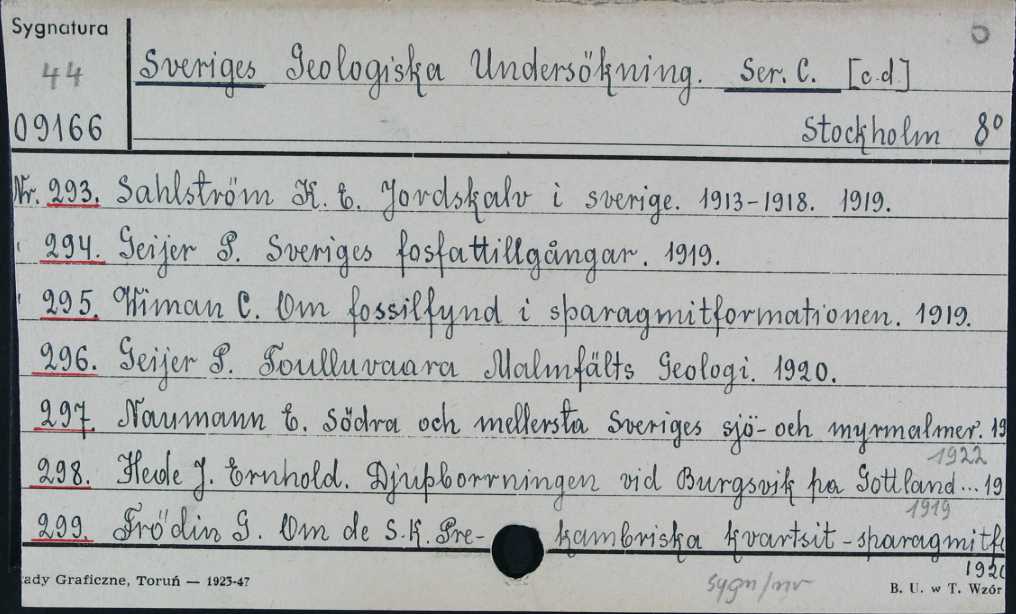 Sygnatura 5
44 Sveriges Geologiska Undersökning. Ser. C. [c.d]
09166 Stockholm 8°
Nr. 293. Sahlström K. E. Jordskalv i sverige. 1913-1918. 1919.
294. Geijer P. Sveriges fosfattillgångar. 1919.
295. Wiman C. Om fossilfynd i sparagmitformationen. 1919.
296. Geijer P. Toulluvaara Malmfälts Geologi. 1920.
297. Naumann E. Södra och mellersta Sveriges sjö- och myrmalmer. 19
1922
298. Hede J. Ernhold. Djupborrningen vid Burgsvik pa Gottland... 19
1919
299. Frödin G. Om de s.k. Pre- kambriska kvartsit-sparagmitfo
1920
ady Graficzne, Toruń — 1923-47 sygn/nv B. U. w T. Wzór